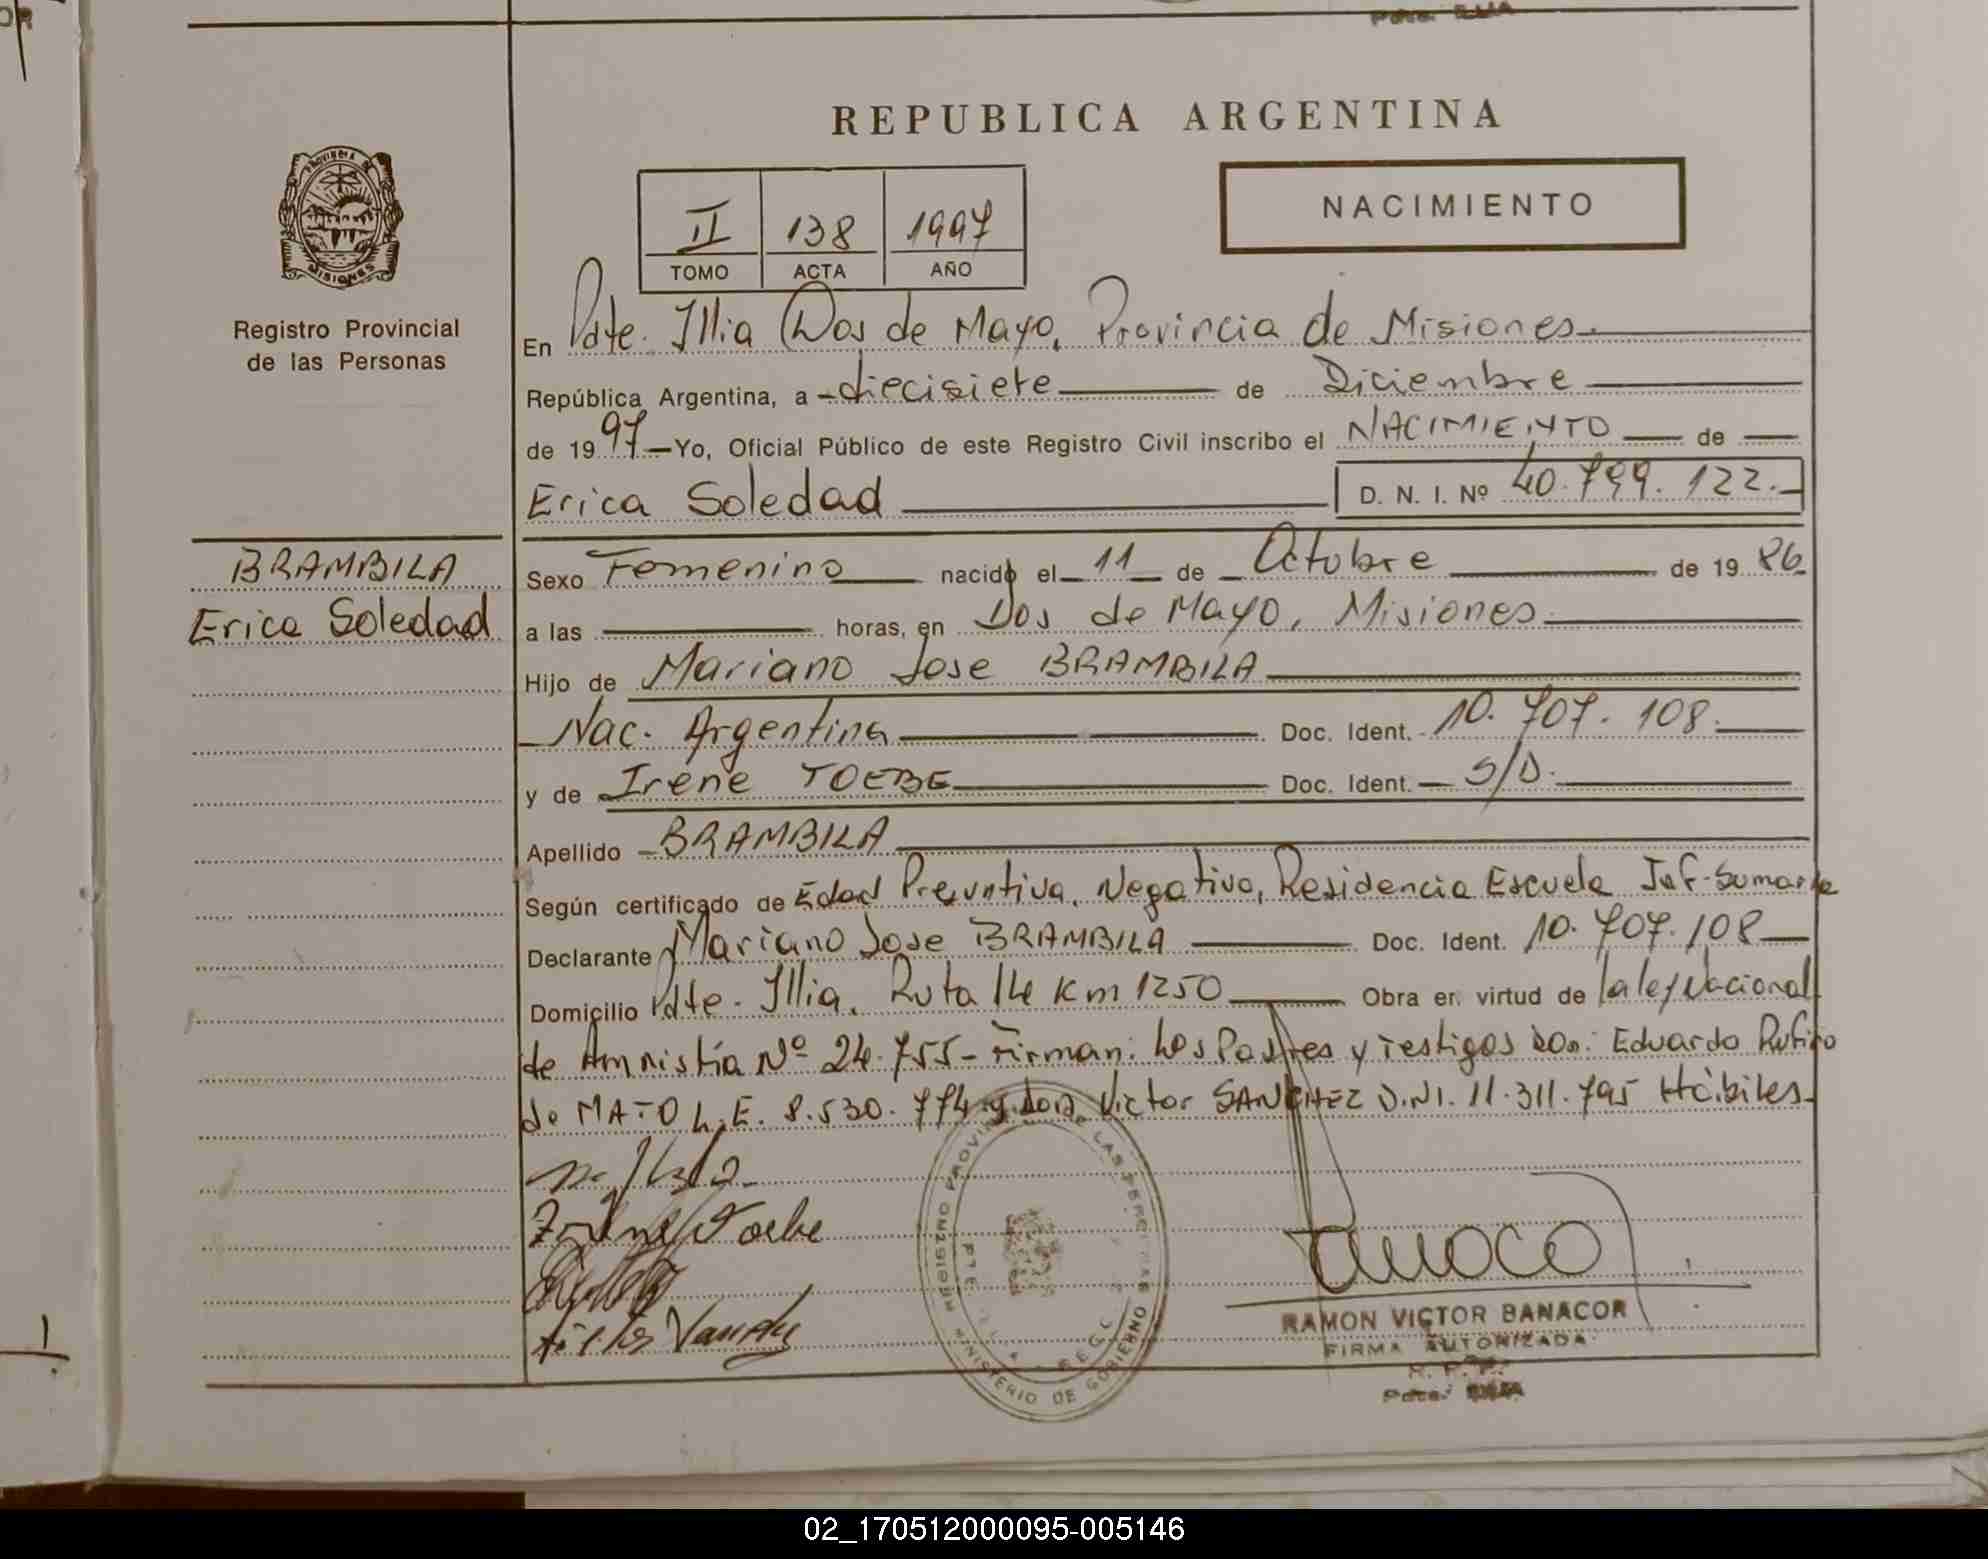 REPUBLICA ARGENTINA
NACIMIENTO
II 138 1997
TOMO ACTA AÑO
PROVINCIA DE
MISIONES
Registro Provincial
de las Personas
En Pdte. Illia (Dos de Mayo, Provincia de Misiones
República Argentina, a diecisiete de Diciembre
de 1997 Yo, Oficial Público de este Registro Civil inscribo el NACIMIENTO de
Erica Soledad D. N. I. Nº 40.799.122.
BRAMBILA
Erica Soledad
Sexo Femenino nacido el 11 de Octubre de 1986
a las horas, en Dos de Mayo, Misiones
Hijo de Mariano Jose BRAMBILA
Nac. Argentina Doc. Ident. 10.707.108.
y de Irene TOEBE Doc. Ident. S/D.
Apellido BRAMBILA
Según certificado de Edad Presuntiva, Negativo, Residencia Escuela Inf. Sumaria
Declarante Mariano Jose BRAMBILA Doc. Ident. 10.707.108
Domicilio Pdte. Illia, Ruta 14 Km 1250 Obra en virtud de la ley Nacional
de Amnistía Nº 24.755- Firman: Los Padres y Testigos Don: Eduardo Rufino
de MATO L.E. 8.530.774 y don Victor SANCHEZ D.NI. 11.311.795 Hábiles
Irene Toebe
REGISTRO PROVINCIAL DE LAS PERSONAS
MINISTERIO DE GOBIERNO
RAMON VICTOR BANACOR
FIRMA AUTORIZADA
R. P. P.
02_170512000095-005146